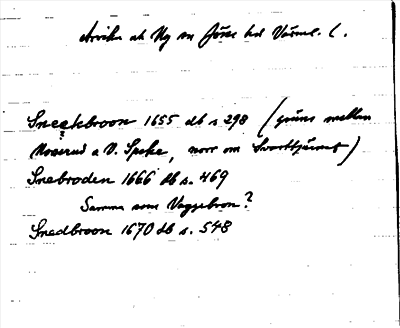 Arvika ek Ny sn Jösse hd Värml. l.
Sneekbroon 1655 db s 298 (gräns mellan
?
Moserud o V. Speke, norr om Svarttjärnet)
Snebroden 1666 db s. 469
Samma som Vaggebron?
Snedbroon 1670 db s. 548